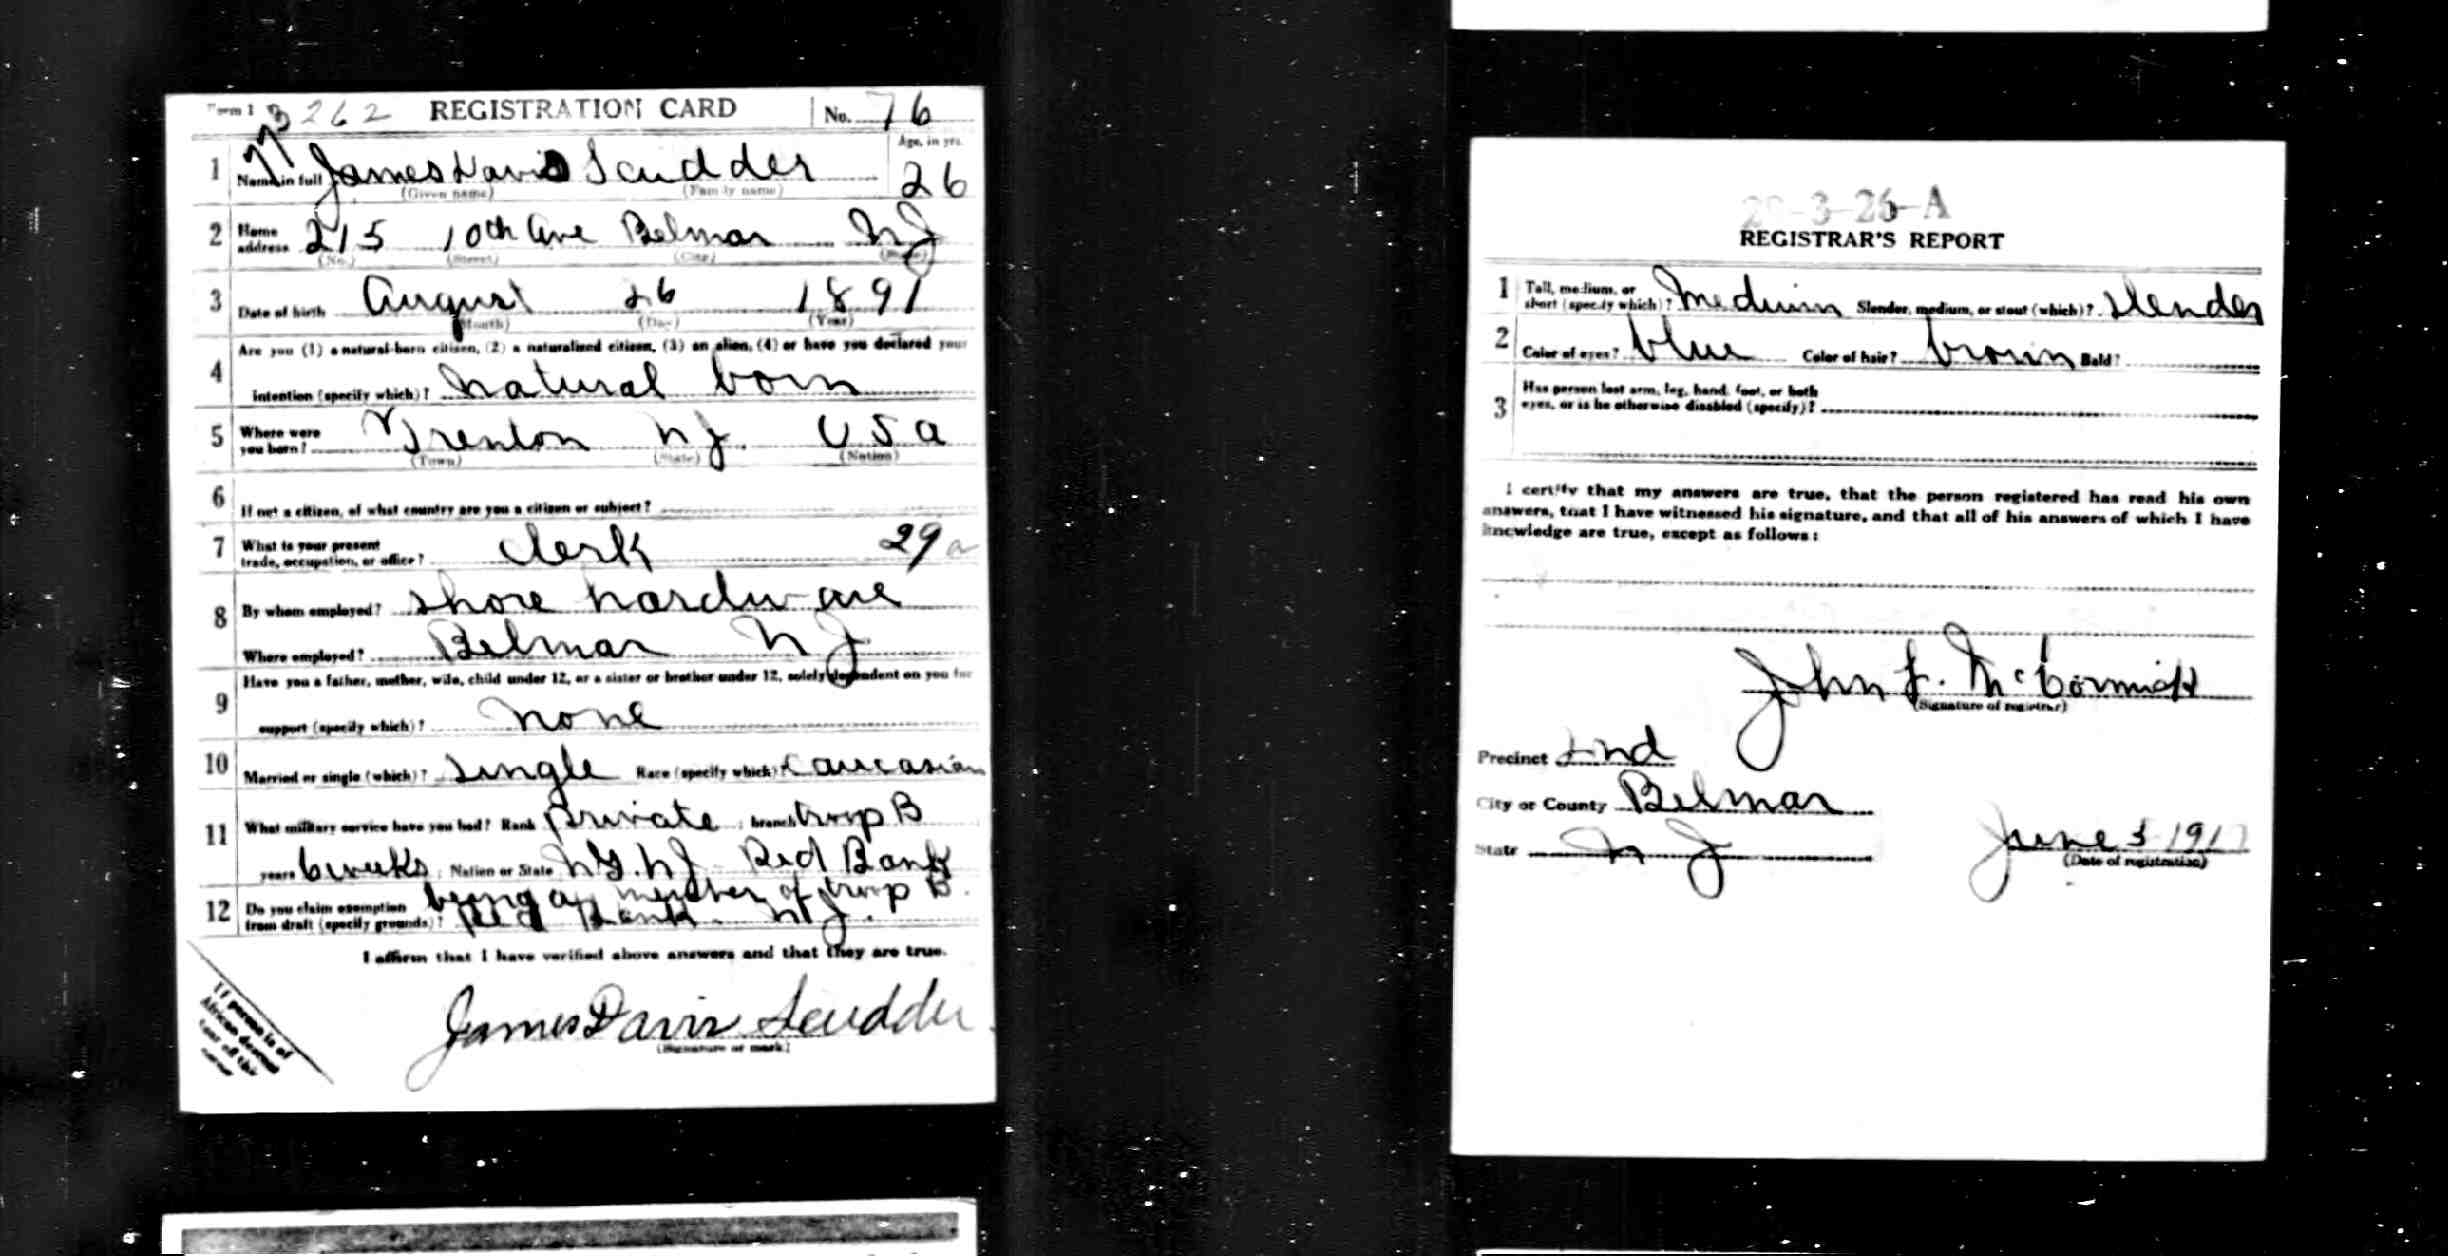 Form 1 3262 REGISTRATION CARD No. 76
1 Name in full James Davis Scudder Age, in yrs. 26
(Given name) (Family name)
2 Home address 215 10th Ave Belmar NJ
(No.) (Street) (City) (State)
3 Date of birth August 26 1891
(Month) (Day) (Year)
4 Are you (1) a natural-born citizen, (2) a naturalized citizen, (3) an alien, (4) or have you declared your
intention (specify which)? natural born
5 Where were you born? Trenton NJ. USA
(Town) (State) (Nation)
6 If not a citizen, of what country are you a citizen or subject?
7 What is your present trade, occupation, or office? Clerk 29
8 By whom employed? Shore hardware
Where employed? Belmar NJ
9 Have you a father, mother, wife, child under 12, or a sister or brother under 12, solely dependent on you for
support (specify which)? none
10 Married or single (which)? Single Race (specify which)? Caucasian
11 What military service have you had? Rank private ; branch troop B
years 6 weeks ; Nation or State NG. NJ. Red Bank
12 Do you claim exemption from draft (specify grounds)? being a member of troop B.
Red Bank. NJ.
I affirm that I have verified above answers and that they are true.
James Davis Scudder
(Signature or mark)
If person is of
African descent
tear off this
corner
-3-26-A
REGISTRAR'S REPORT
1 Tall, medium, or short (specify which)? Medium Slender, medium, or stout (which)? Slender
2 Color of eyes? blue Color of hair? brown Bald?
3 Has person lost arm, leg, hand, foot, or both
eyes, or is he otherwise disabled (specify)?
I certify that my answers are true, that the person registered has read his own
answers, that I have witnessed his signature, and that all of his answers of which I have
knowledge are true, except as follows:
John F. McCormick
(Signature of registrar)
Precinct 2nd
City or County Belmar
State NJ June 5 1917
(Date of registration)